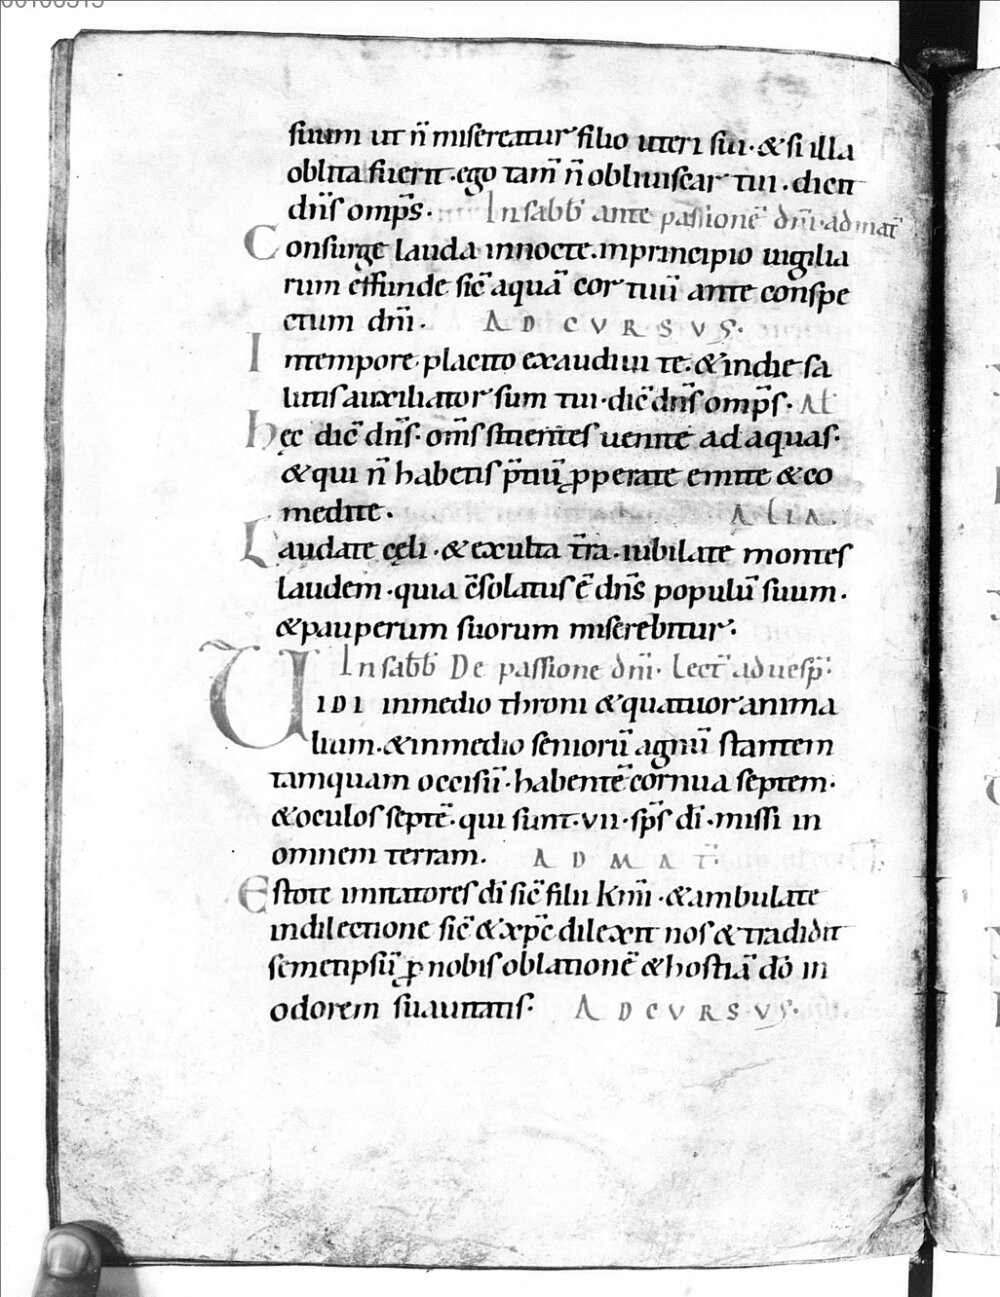 suum ut n̄ misereatur filio uteri sui · & si illa
oblita fuerit · ego tam̄ n̄ obliuiscar tui · dicit
dn̄s omp̄s · In sabb̄ ante passionē dn̄i · ad mat̄
Consurge lauda in nocte · in principio uigilia
rum effunde sic̄ aquā cor tuū ante conspe
ctum dn̄i · AD CVRSVS ·
In tempore placito exaudiui te · & in die sa
lutis auxiliator sum tui · dic̄ dn̄s omp̄s · Al
hęc dic̄ dn̄s · om̄s sitientes uenite ad aquas ·
& qui n̄ habetis p̄tiū ꝓperate emite & co
medite · ALIA ·
Laudate cęli · & exulta t̄ra · iubilate montes
laudem · quia c̄solatus ē dn̄s populū suum ·
& pauperum suorum miserebitur ·
In sabb̄ De passione dn̄i · Lect̄ ad uesp̄ ·
VIDI in medio throni & quatuor anima
lium · & in medio seniorū agnū stantem
tamquam occisū · habentē cornua septem ·
& oculos septē · qui sunt · vii · sp̄s dī · missi in
omnem terram · AD MAT̄ ·
Estote imitatores dī sic̄ filii kmī · & ambulate
in dilectione sic̄ & xp̄c dilexit nos & tradidit
semetipsū ꝓ nobis oblationē & hostiā dō in
odorem suauitatis · AD CVRSVS ·